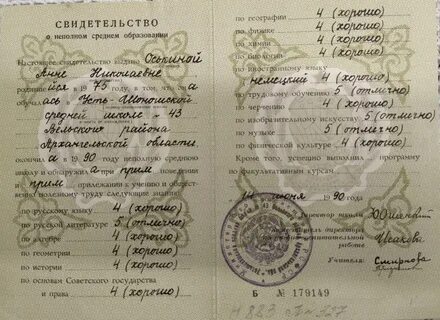 СВИДЕТЕЛЬСТВО
о неполном среднем образовании
Настоящее свидетельство выдано Оськиной
Анне Николаевне
родившейся в 1975 году, в том, что а
ась Усть-Шоношской
средней школе - 43
Вельского района
Архангельской области.
окончила в 1990 году неполную среднюю
школу и обнаружила при прим
прим прилежании к учению и общест-
венно полезному труду следующие знания:
по русскому языку 4 (хорошо)
по русской литературе 5 (отлично)
по 4 (хорошо)
по геометрии 4 (хорошо)
по истории 4 (хорошо)
по основам Советского государства
и права 4 (хорошо)
по географии 4 (хорошо)
по физике 4 (хорошо)
по химии 4 (хорошо)
по биологии 4 (хорошо)
по иностранному языку
немецкий 4 (хорошо)
по трудовому обучению 5 (отлично)
по черчению 4 (хорошо)
по изобразительному искусству 5 (отлично)
по музыке 5 (отлично)
по физической культуре 4 (хорошо)
Кроме того, успешно выполнил программу
по факультативным курсам
14 июня 1990 года
Директор школы
Заместитель директора
по
работе Исакова
Учителя: Смирнова
Б № 179149